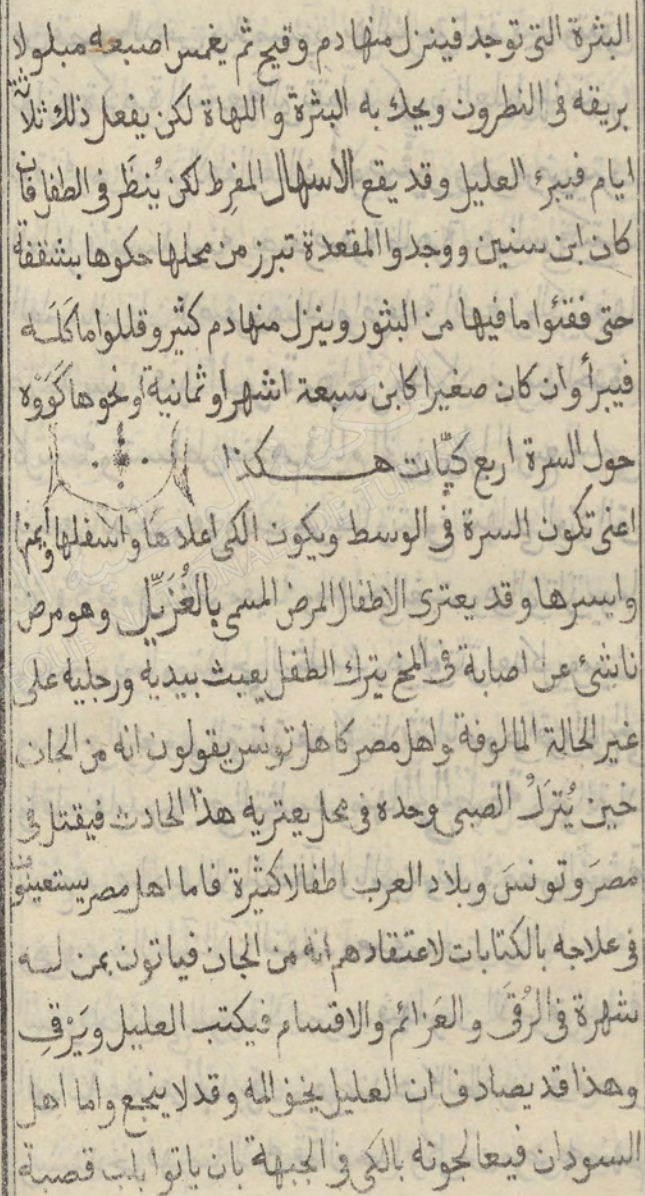 البثرة التى توجد فينزل منها دم وقيح ثم يغمس اصبعه مبلولا
بريقه فى النطرون ويحك به البثرة واللهاة لكن يفعل ذلك ثلاثة
ايام فيبرء العليل وقد يقع الاسهال المفرِط لكن يُنظَر فى الطفل فان
كان ابن سنين ووجدوا المقعدة تبرز من محلها حكوها بشقفة
حتى فقئوا ما فيها من البثور وينزل منها دم كثير وقللوا ماكَلَه
فيبرأ وان كان صغيرا كابن سبعة اشهر او ثمانية او نحوها كَوَوْه
حول السرة اربع كيّات هكذا
اعنى تكون السرة فى الوسط ويكون الكى اعلاها واسفلها وايمنها
وايسرها وقد يعترى الاطفال المرض المسمى بالغُزَيِّل وهو مرض
ناشئ عن اصابة فى المخ يترك الطفل يعبث بيديه ورجليه على
غير الحالة المالوفة واهل مصر كاهل تونس يقولون انه من الجان
فحين يُترَكُ الصبى وحده فى محل يعتريه هذا الحادث فيقتل فى
مصرَ وتونسَ وبلاد العرب اطفالا كثيرة فاما اهل مصر يستعينون
فى علاجه بالكتابات لاعتقادهم انه من الجان فياتون بمن له
شهرة فى الرُقَى والعَزائم والاقسام فيكتب العليل ويَرْقِى
وهذا قد يصادف ان العليل يخف المه وقد لا ينجع واما اهل
السودان فيعالجونه بالكَى فى الجبهة بان ياتوا بلب قصبة